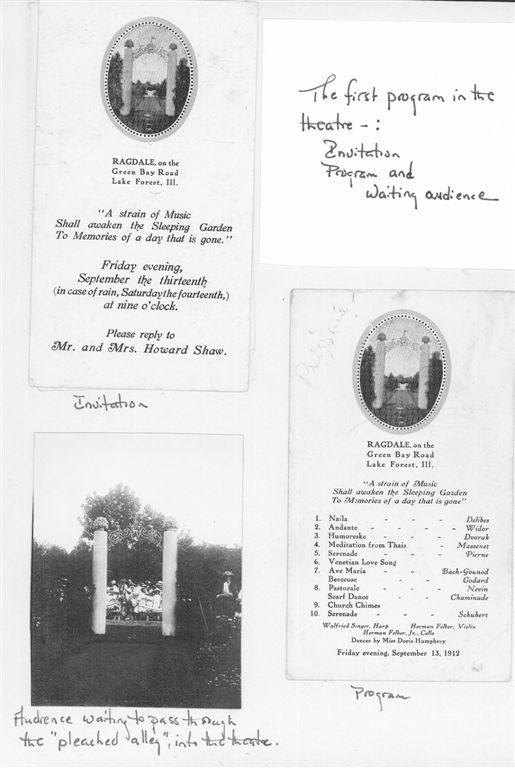 RAGDALE, on the
Green Bay Road
Lake Forest, Ill.
"A strain of Music
Shall awaken the Sleeping Garden
To Memories of a day that is gone."
Friday evening,
September the thirteenth
(in case of rain, Saturday the fourteenth,)
at nine o'clock.
Please reply to
Mr. and Mrs. Howard Shaw.
Invitation
The first program in the
theatre - :
Invitation
Program and
Waiting audience
RAGDALE, on the
Green Bay Road
Lake Forest, Ill.
"A strain of Music
Shall awaken the Sleeping Garden
To Memories of a day that is gone"
1. Naila - - - Delibes
2. Andante - - - - Widor
3. Humoreske - - - Dvorak
4. Meditation from Thais - Massenet
5. Serenade - - - Pierne
6. Venetian Love Song
7. Ave Maria - - Bach-Gounod
Berceuse - - Godard
8. Pastorale - - - Nevin
Scarf Dance - - Chaminade
9. Church Chimes
10. Serenade - - - Schubert
Walfried Singer, Harp Herman Felber, Violin
Herman Felber, Jr., Cello
Dances by Miss Doris Humphrey
Friday evening, September 13, 1912
Program
Audience waiting to pass through
the "pleached alley", into the theatre.